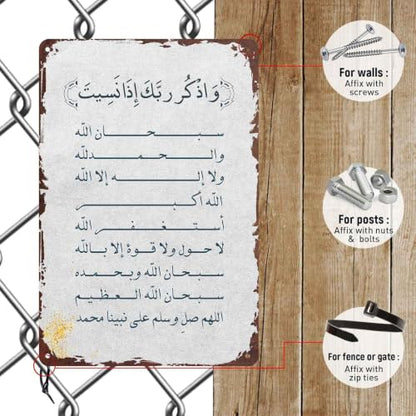 وَاذْكُر رَبَّكَ إِذَا نَسِيتَ
سبحان الله
والحمدلله
ولا إله إلا الله
الله أكبر
أستغفر الله
لا حول ولا قوة إلا بالله
سبحان الله وبحمده
سبحان الله العظيم
اللهم صلِ وسلم على نبينا محمد
For walls :
Affix with
screws
For posts :
Affix with nuts
& bolts
For fence or gate :
Affix with
zip ties